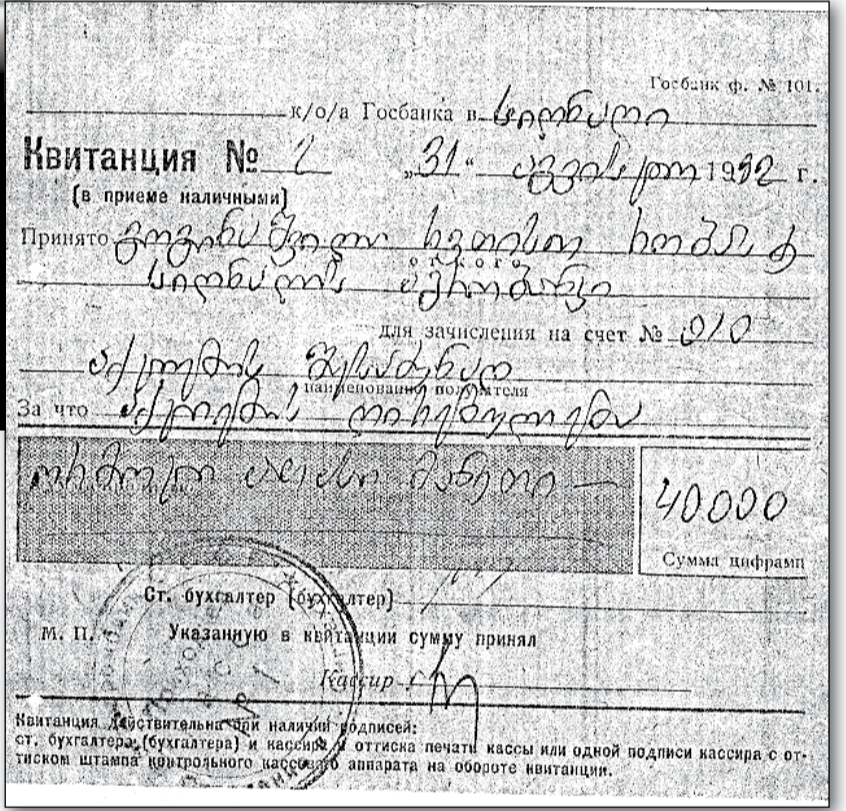 Госбанк ф. № 101.
к/о/а Госбанка в სიღნაღი
Квитанция № 2 „31“ აგვისტო 1992 г.
(в приеме наличными)
Принято
от кого
სიღნაღის აგრობანკი
для зачисления на счет № 010
აქციების შესაძენად
наименование получателя
За что აქციების ღირებულება
ორმოცი ათასი მანეთი —
40000
Сумма цифрами
Ст. бухгалтер (бухгалтер)
М. П. Указанную в квитанции сумму принял
Кассир
Квитанция действительна при наличии подписей:
ст. бухгалтера (бухгалтера) и кассира и оттиска печати кассы или одной подписи кассира с от-
тиском штампа контрольного кассового аппарата на обороте квитанции.